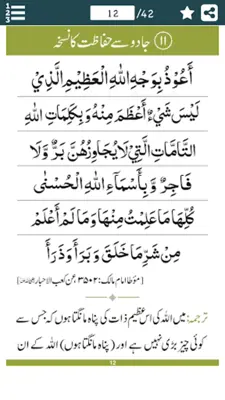 12 / 42
۱۱ جادو سے حفاظت کا نسخہ
أَعُوْذُ بِوَجْهِ اللهِ الْعَظِيْمِ الَّذِيْ
لَيْسَ شَيْءٌ أَعْظَمَ مِنْهُ وَ بِكَلِمَاتِ اللهِ
التَّامَّاتِ الَّتِيْ لَا يُجَاوِزُهُنَّ بَرٌّ وَّلَا
فَاجِرٌ وَ بِأَسْمَآءِ اللهِ الْحُسْنٰى
كُلِّهَا مَا عَلِمْتُ مِنْهَا وَ مَا لَمْ أَعْلَمْ
مِنْ شَرِّ مَا خَلَقَ وَ بَرَأَ وَ ذَرَأَ
مؤطا امام مالک: ۳۵۰۲، عن کعب الاحبار
ترجمہ: میں اللہ کی اس عظیم ذات کی پناہ مانگتا ہوں کہ جس سے
کوئی چیز بڑی نہیں ہے اور (پناہ مانگتا ہوں) اللہ کے ان
12